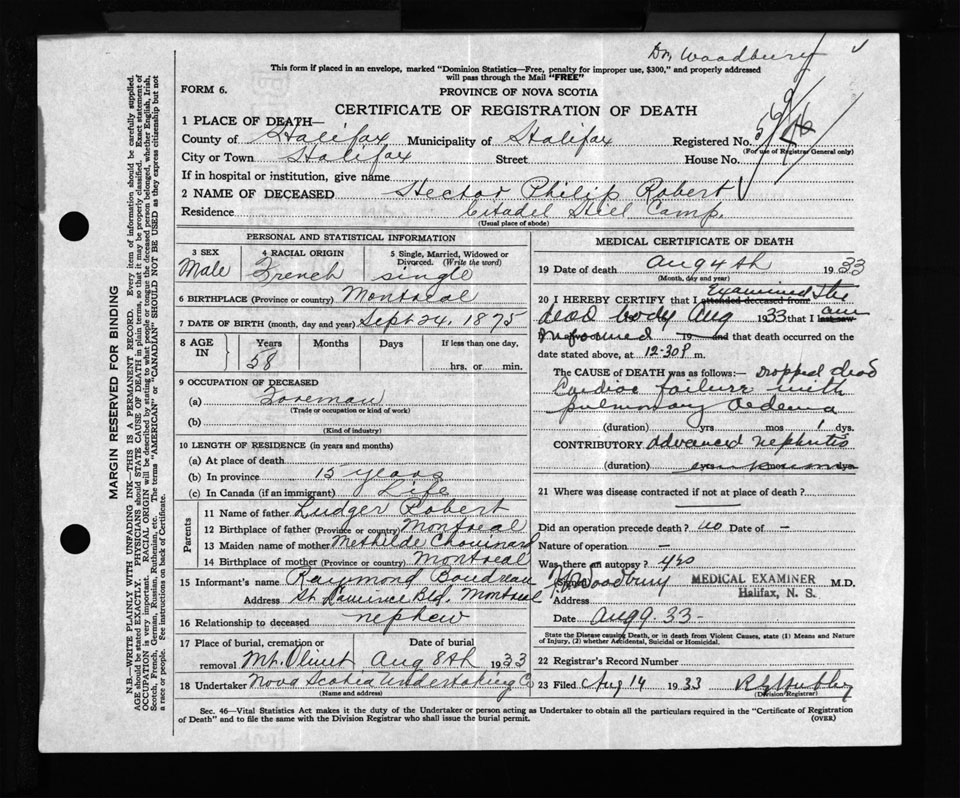 Dr. Woodbury
This form if placed in an envelope, marked "Dominion Statistics—Free, penalty for improper use, $300," and properly addressed
will pass through the Mail "FREE"
FORM 6.
PROVINCE OF NOVA SCOTIA
CERTIFICATE OF REGISTRATION OF DEATH
1 PLACE OF DEATH—
County of Halifax Municipality of Halifax Registered No.
(For use of Registrar General only)
City or Town Halifax Street House No.
If in hospital or institution, give name
2 NAME OF DECEASED Hector Philip Robert
Residence Citadel Hill Camp.
(Usual place of abode)
PERSONAL AND STATISTICAL INFORMATION
3 SEX Male
4 RACIAL ORIGIN French
5 Single, Married, Widowed or Divorced. (Write the word) single
6 BIRTHPLACE (Province or country) Montreal
7 DATE OF BIRTH (month, day and year) Sept 24, 1875
8 AGE IN Years Months Days If less than one day,
58 hrs. or min.
9 OCCUPATION OF DECEASED
(a) Foreman
(Trade or occupation or kind of work)
(b)
(Kind of industry)
10 LENGTH OF RESIDENCE (in years and months)
(a) At place of death
(b) In province 15 years
(c) In Canada (if an immigrant) Life
Parents
11 Name of father Ludger Robert
12 Birthplace of father (Province or country) Montreal
13 Maiden name of mother Methilde Chouinard
14 Birthplace of mother (Province or country) Montreal
15 Informant's name Raymond Boudreau
Address St. Laurence Bld. Montreal
16 Relationship to deceased nephew
17 Place of burial, cremation or removal Mt. Olivet Date of burial Aug 8th 1933
18 Undertaker Nova Scotia Undertaking Co
(Name and address)
MEDICAL CERTIFICATE OF DEATH
19 Date of death Aug 4th 1933
(Month, day and year)
20 I HEREBY CERTIFY that I attended deceased from Examined the
dead body Aug 1933 that I last saw am
informed 19 and that death occurred on the
date stated above, at 12-30 P m.
The CAUSE of DEATH was as follows:- Dropped dead
Cardiac failure with
pulmonary Oedema
(duration) yrs mos 1 dys.
CONTRIBUTORY advanced nephritis
(duration)
21 Where was disease contracted if not at place of death?
Did an operation precede death? no Date of —
Nature of operation —
Was there an autopsy? yes
Woodbury MEDICAL EXAMINER M.D.
Address Halifax, N. S.
Date Aug 9. 33-
State the Disease causing Death, or in death from Violent Causes, state (1) Means and Nature
of Injury, (2) whether Accidental, Suicidal or Homicidal.
22 Registrar's Record Number
23 Filed Aug 14 1933
(Division Registrar)
Sec. 46—Vital Statistics Act makes it the duty of the Undertaker or person acting as Undertaker to obtain all the particulars required in the "Certificate of Registration
of Death" and to file the same with the Division Registrar who shall issue the burial permit.
(OVER)
MARGIN RESERVED FOR BINDING
N.B.—WRITE PLAINLY WITH UNFADING INK—THIS IS A PERMANENT RECORD. Every item of information should be carefully supplied.
AGE should be stated EXACTLY. PHYSICIANS should STATE CAUSE OF DEATH in plain terms, so that it may be properly classified. Exact statement of
OCCUPATION is very important. RACIAL ORIGIN will be described by stating to what people or tongue the deceased person belonged, whether English, Irish,
Scotch, French, German, Russian, Ruthenian, etc. The terms "AMERICAN" or "CANADIAN" SHOULD NOT BE USED as they express citizenship but not
a race or people. See instructions on back of Certificate.